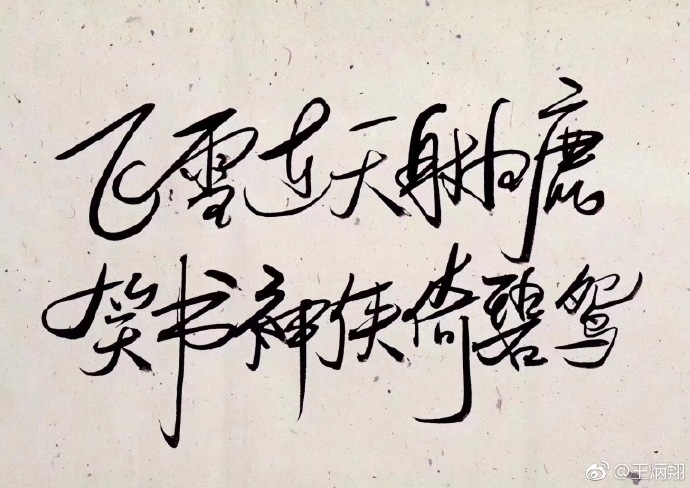 飞雪连天射白鹿
笑书神侠倚碧鸳
@王炳翔